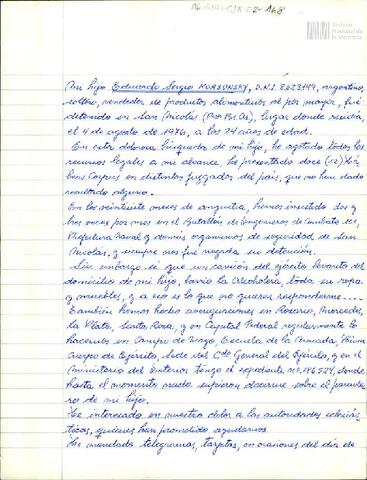 Archivo
Nacional de
la Memoria
Mi hijo Eduardo Sergio KORSUNSKY, D.N.I. 8623144, argentino,
soltero, vendedor de productos alimenticios al por mayor, fué
detenido en San Nicolás (Pro Bs. As), lugar donde residía,
el 4 de agosto de 1976, a los 24 años de edad.
En esta dolorosa búsqueda de mi hijo, he agotado todos los
recursos legales a mi alcance, he presentado doce (12) Há
beas Corpus en distintos juzgados del país, que no han dado
resultado alguno.
En los veintisiete meses de angustia, hemos insistido dos y
tres veces por mes en el Batallón de Ingenieros de Combate 101,
Prefectura Naval y demás organismos de seguridad de San
Nicolás, y siempre nos fué negada su detención.
Sin embargo se que un camión del ejército levantó del
domicilio de mi hijo, barrio la toda su ropa
y muebles, y a eso es lo que no quieren responderme...
También hemos hecho averiguaciones en Rosario, Mercedes,
La Plata, Santa Rosa, y en Capital Federal regularmente lo
hacemos en Campo de Mayo, Escuela de la Armada, Primer
Cuerpo de Ejército, Sede del Cdo General del Ejército, y en el
Ministerio del Interior tengo el expediente nº 186.524, donde
hasta el momento nada supieron decirme sobre el parade
ro de mi hijo.
He interesado en nuestro dolor a las autoridades eclesiás
ticas, quienes han prometido ayudarnos.
He mandado telegramas, tarjetas, en ocasiones del día de